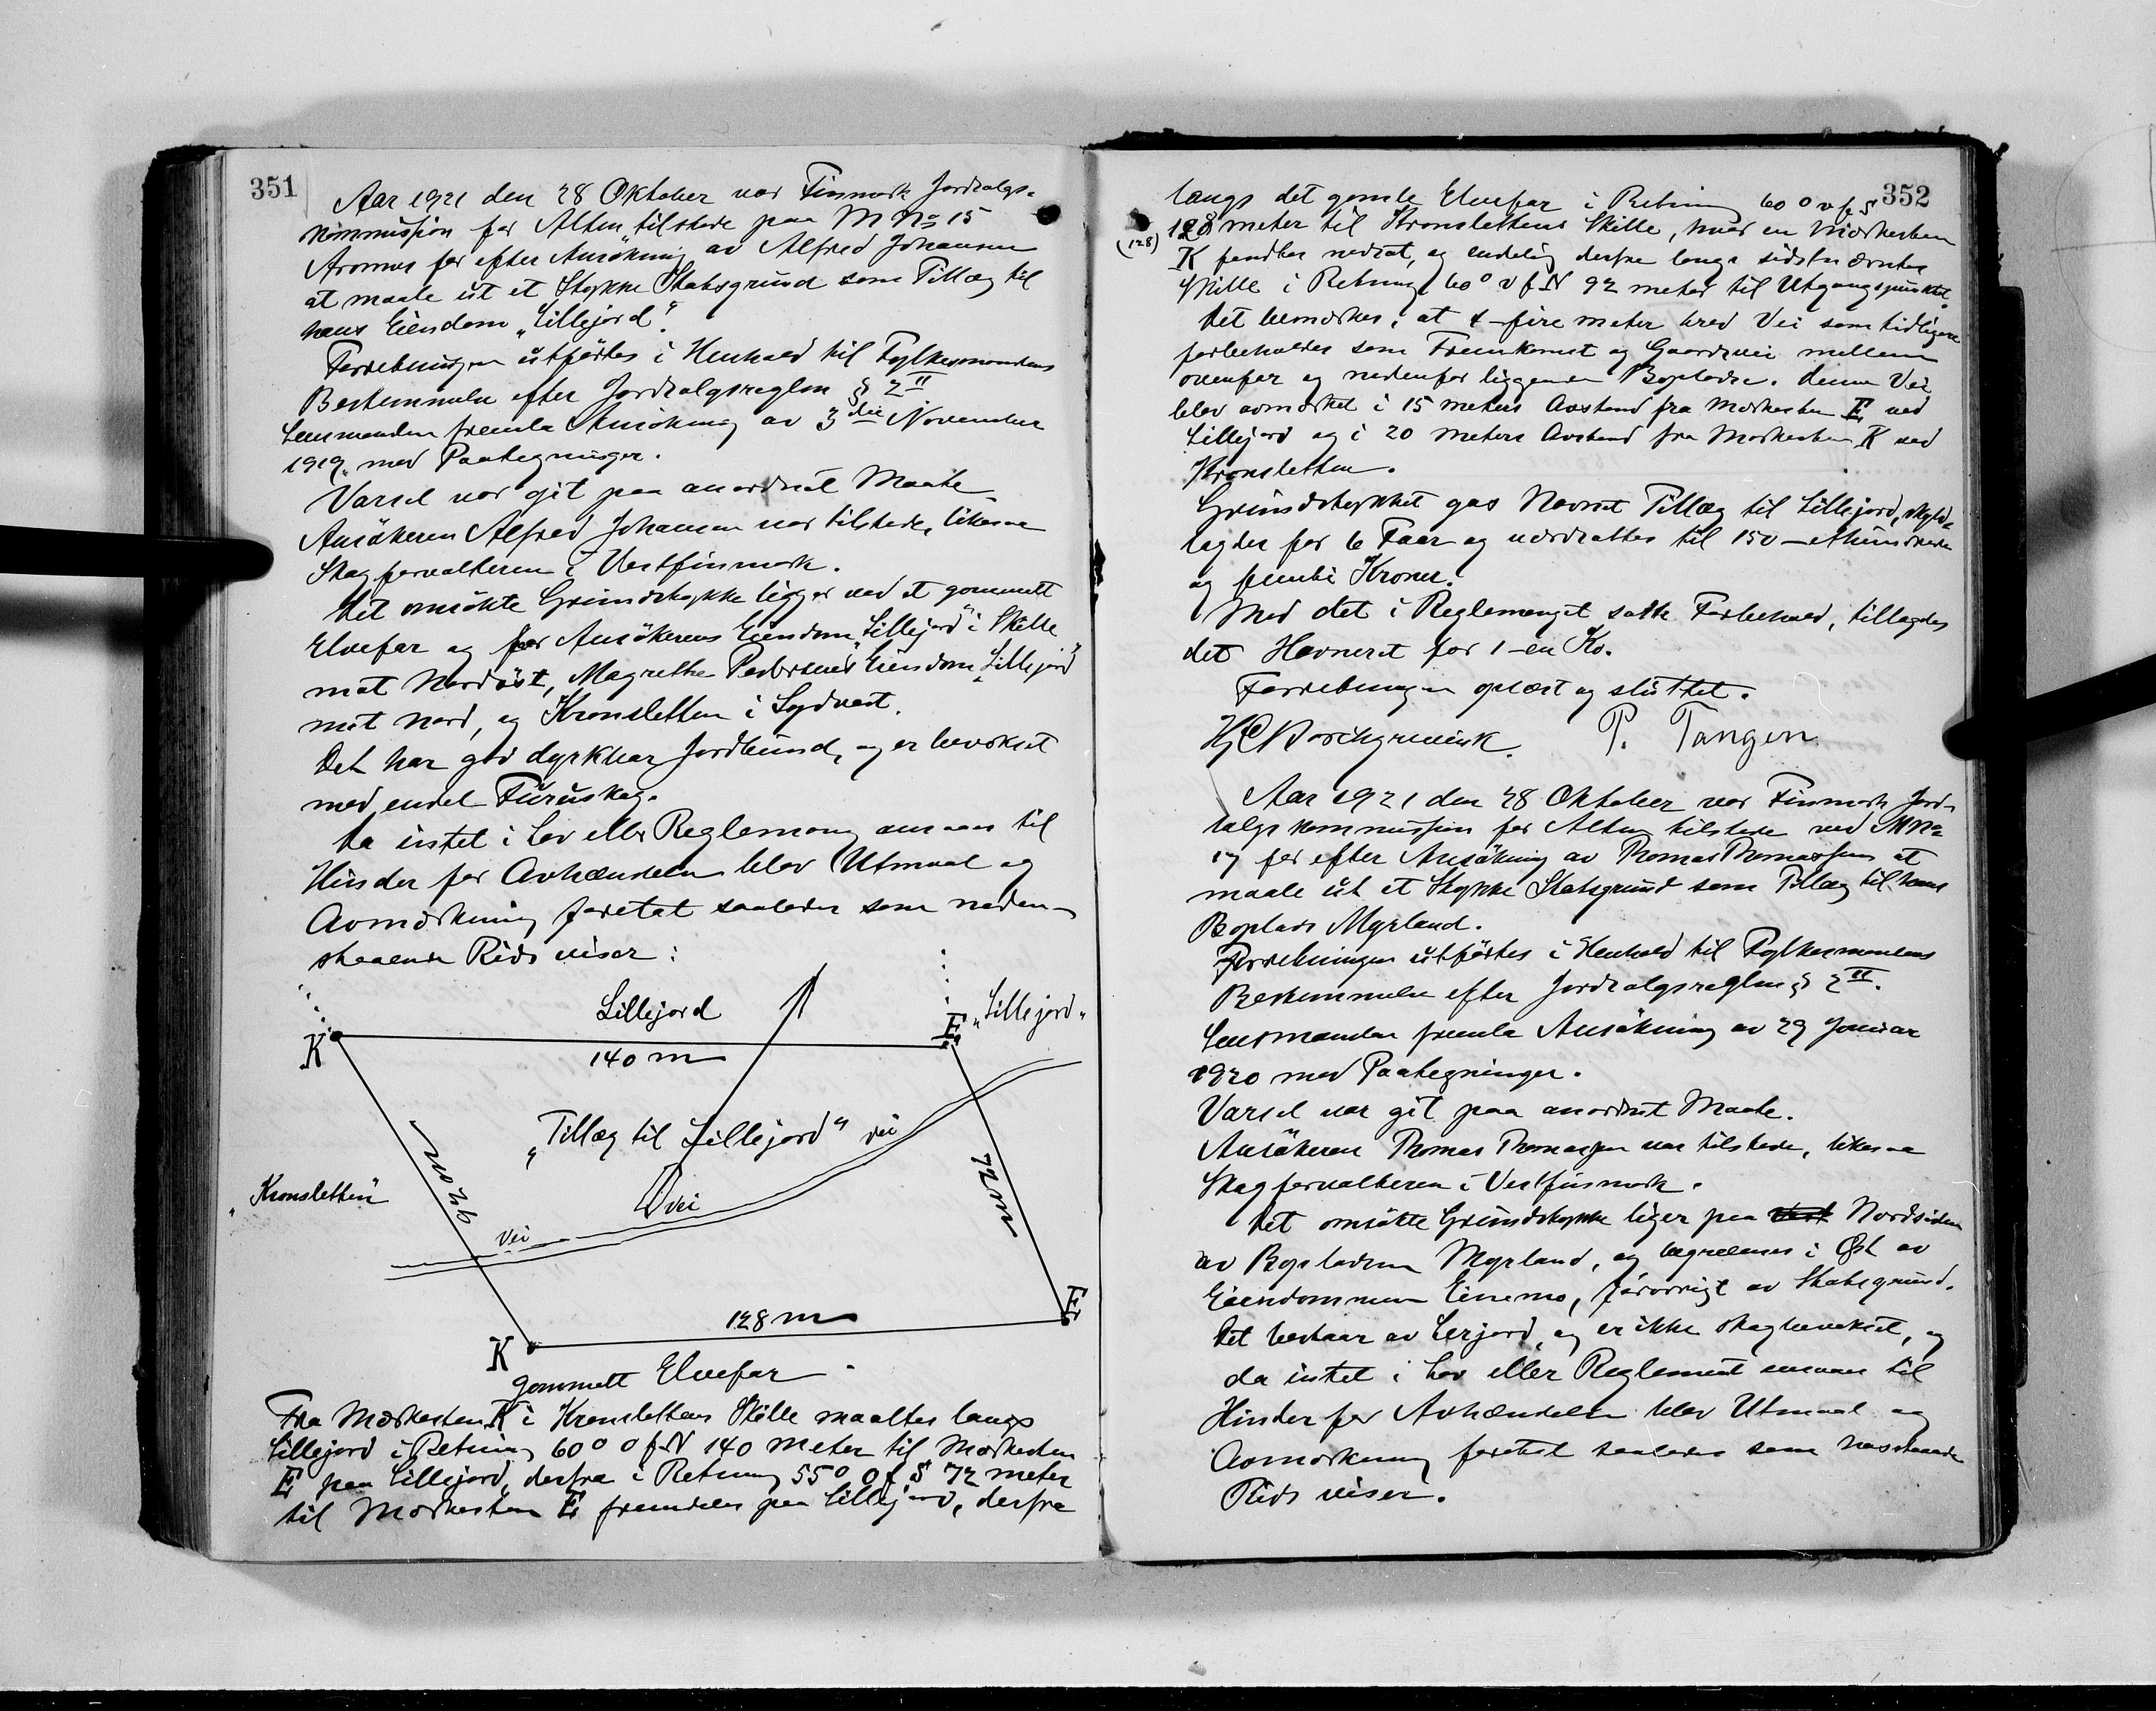 351
Aar 1921 den 28 Oktober var Finmark Jordsalgs-
kommission for Alten tilstede paa M No 15
Aronnes for efter Ansökning av Alfred Johansen
at maale ut et Stykke Statsgrund som Tillæg til
hans Eiendom „Lillejord".
Forretningen utførtes i Henhold til Fylkesmandens
Bestemmelse efter Jordsalgsreglem § 2 II
Lensmanden fremla Ansökning av 3die November
1919 med Paategninger.
Varsel var git paa anordnet Maate
Ansökeren Alfred Johansen var tilstede, likesaa
Skogforvalteren i Vestfinmark.
Det omsökte Grundstykke ligger ved et gammelt
Elvefar og for Ansökerens Eiendom „Lillejord" i Skille
mot Nordöst, Magrethe Pedersens Eiendom „Lillejord"
mot Nord, og Kronsletten i Sydvest.
Det har god dyrkbar Jordbund, og er bevokset
med endel Furuskog.
Da intet i Lov eller Reglement ansaas til
Hinder for Avhændelsen blev Utmaal og
Avmerkning foretat saaledes som neden-
staaende Rids viser:
Lillejord
„Lillejord„
K
E
140 m
„Tillæg til Lillejord"
vei
92 m
72 m
„Kronsletten"
vei
vei
128 m
E
K
gammelt Elvefar
Fra Merkesten K i Kronslettens Skille maaltes langs
Lillejord i Retning 60° O f N 140 meter til Merkesten
E paa Lillejord, derfra i Retning 55° O f S 72 meter
til Merkesten E fremdeles paa Lillejord, derfra
352
langs det gamle Elvefar i Retning 60° v f S
128 meter til Kronslettens Skille, hvor en Merkesten
(128)
K fandtes nedsat, og endelig derfra langs sidstnævnte
Skille i Retning 60° v f N 92 meter til Utgangspunktet.
Det bemerkes, at 4 - fire meter bred Vei som tidligere
forbeholdes som Fremkomst og Gaardsvei mellem
ovenfor og nedenfor liggende Bopladse. Denne Vei
blev avmerket i 15 meters Avstand fra Merkesten E ved
Lillejord og i 20 meters Avstand fra Merkesten K ved
Kronsletten.
Grundstykket gas Navnet Tillæg til Lillejord, skyld-
lagdes for 6 Fær og værdsattes til 150 - ethundrede
og femti Kroner.
Med det i Reglementet satte Forbehold, tillagdes
det Havneret for 1 - en Ko.
Forretningen oplæst og sluttet.
Hj C Borchgrevink. P. Tangen
Aar 1921 den 28 Oktober var Finmark Jord-
salgskommission for Alten tilstede ved M No
17 for efter Ansökning av Thomas Thomassen at
maale ut et Stykke Statsgrund som Tillæg til hans
Boplads Myrland.
Forretningen utførtes i Henhold til Fylkesmandens
Bestemmelse efter Jordsalgsreglem § 2 II.
Lensmanden fremla Ansökning av 29 Januar
1920 med Paategninger.
Varsel var git paa anordnet Maate.
Ansökeren Thomas Thomassen var tilstede, likesaa
Skogforvalteren i Vestfinmark.
Det omsökte Grundstykke liger paa Nordsiden
av Bopladsen Myrland, og begrænses i Øst av
Eiendommen Einemo, forövrigt av Statsgrund.
Det bestaar av Lerjord, og er ikke skogbevokset, og
da intet i Lov eller Reglement ansaas til
Hinder for Avhændelsen blev Utmaal og
Avmerkning foretat saaledes som
Rids viser.